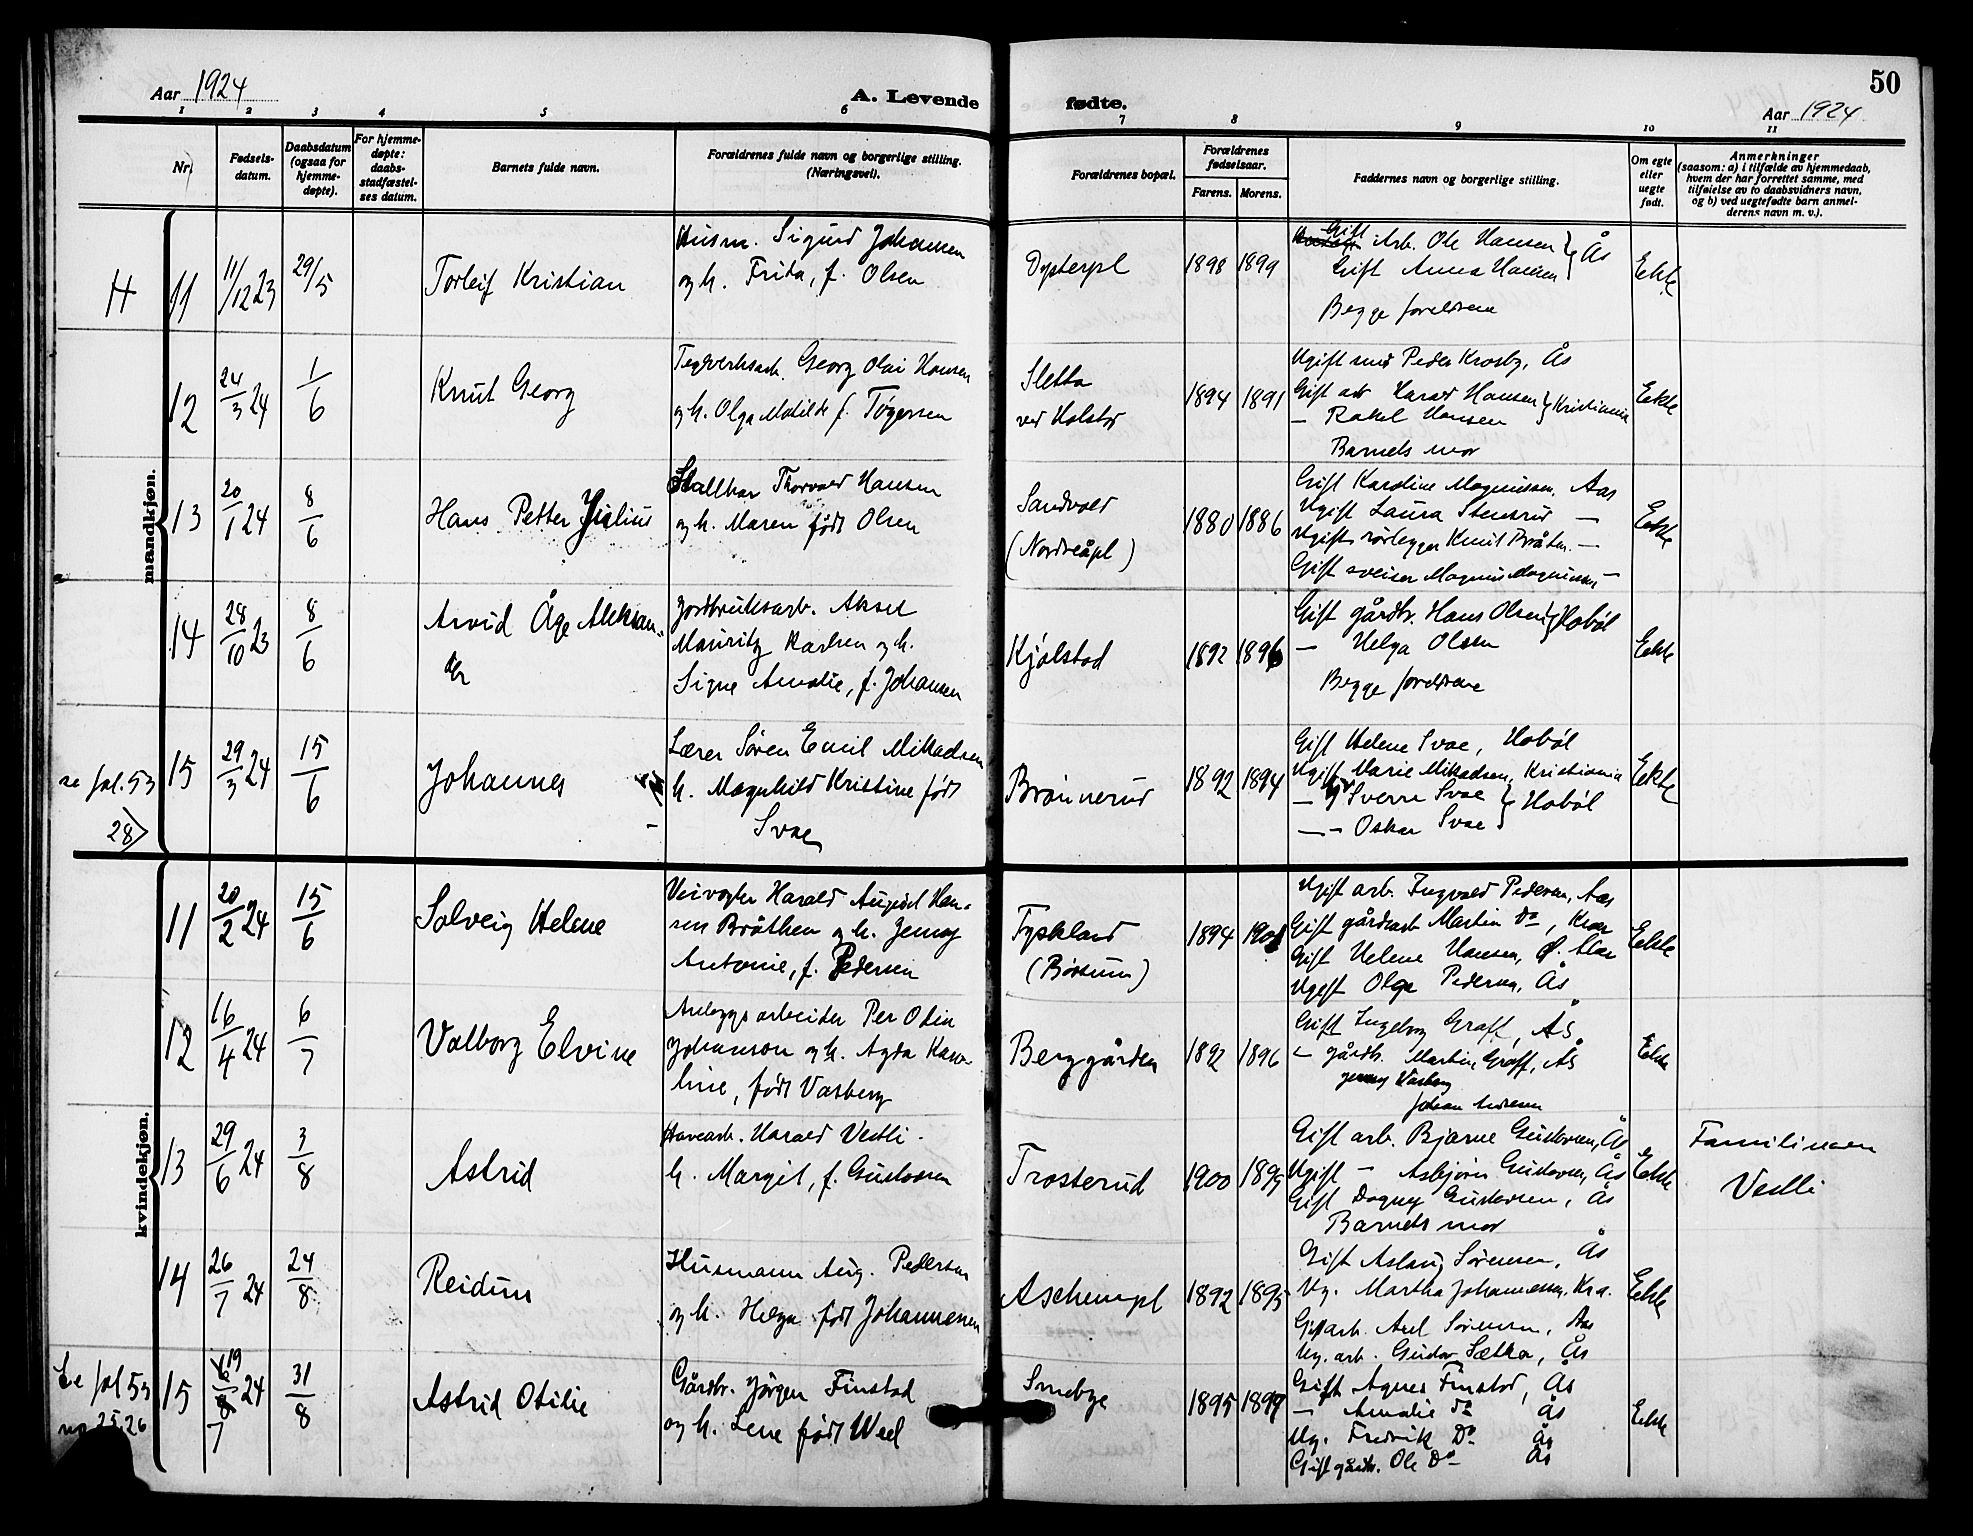 50
Aar 1924
A. Levende fødte.
Aar 1924
1 2 3 4 5 6 7 8 9 10 11
Nr.
Fødsels-
datum.
Daabsdatum
(ogsaa for
hjemme-
døpte).
For hjemme-
døpte:
daabs-
stadfæstel-
ses datum.
Barnets fulde navn.
Forældrenes fulde navn og borgerlige stilling.
(Næringsvei).
Forældrenes bopæl.
Forældrenes
fødselsaar.
Farens. Morens.
Faddernes navn og borgerlige stilling.
Om egte
eller
uegte
født.
Anmerkninger
(saasom: a) i tilfælde av hjemmedaab,
hvem der har forrettet samme, med
tilføielse av to daabsvidners navn,
og b) ved uegtefødte barn anmel-
derens navn m. v.).
mandkjøn.
H
11
11/12 23
29/5
Torleif Kristian
Husm. Sigurd Johansen
og h. Frida, f. Olsen
Dysterpl
1898 1899
Gift Arb. Ole Hansen } Ås
Gift Anna Hansen
Begge foreldrene
Ekte
12
24/3 24
1/6
Knut Georg
Teglverksarb. Georg Olai Hansen
og h. Olga Matilde f. Tøgersen
Sletta
ved Holstad
1894 1891
Ugift smed Peder Krosby, Ås
Gift arb Harald Hansen } Kristiania
— Rakel Hansen
Barnets mor
Ekte
13
20/1 24
8/6
Hans Petter Julius
Stallkar Thorvald Hansen
og h. Maren født Olsen
Sandvold
(Nordreåpl)
1880 1886
Gift Karoline Magnussen, Aas
Ugift Laura Stenrud —
Ugift rørlegger Knut Bråten —
Gift sveiser Magnus Magnussen —
Ekte
14
28/10 23
8/6
Arvid Åge Aleksan-
der
Jordbruksarb. Aksel
Mauritz Karlsen og h.
Signe Amalie, f. Johansen
Kjølstad
1892 1896
Gift gårdbr. Hans Olsen } Hobøl
— Helga Olsen
Begge foreldrene
Ekte
se fol. 53
28
15
29/3 24
15/6
Johannes
Lærer Søren Emil Mikadsen
h. Magnhild Kristine født
Svae
Brønnerud
1892 1894
Gift Helene Svae, Hobøl
Ugift Marie Mikadsen, Kristiania
— Sverre Svae } Hobøl
— — Oskar Svae
Ekte
kvindekjøn.
11
20/2 24
15/6
Solveig Helene
Veivogter Harald August Han-
sen Bråthen og h. Jenny
Antonie, f. Pedersen
Tyskland
(Børsum)
1894 1901
Ugift arb. Ingvald Pedersen, Aas
Gift gårdsarb Martin Do, Kroer
Gift Helene Hansen, Ø. Aas
Ugift Olga Pedersen, Ås
Ekte
12
16/4 24
6/7
Valborg Elvine
Anleggsarbeider Per Odin
Johanson og h. Agda Karo-
line, født Vasberg
Berggården
1892 1896
Gift Ingeborg Graff, Ås
— gårdb. Martin Graff, Ås
Jenny Vasberg
Johan Andresen
Ekte
13
29/6 24
3/8
Astrid
Havearb. Harald Vestli.
h. Margit, f. Gustavsen
Trosterud
1900 1899
Gift arb. Bjarne Gustavsen, Ås
Ugift — Asbjørn Gustavsen, Ås
Gift Dagny Gustavsen, Ås
Barnets mor
Ekte
Familienavn
Vestli
14
26/7 24
24/8
Reidun
Husmann Aug. Pedersen
og h. Helga født Johannesen
Aschempl
1892 1895
Gift Aslaug Sørensen, Ås
Ug. Martha Johannessen, Kra.
Gift arb. Axel Sørensen, Aas
Ug. arb. Gustav Sætha, Ås
Ekte
Se fol 53
nr 25, 26
15
19/7 24
31/8
Astrid Otilie
Gårdbr. Jørgen Finstad
og h. Lene født Weel
Smebye
1895 1899
Gift Agnes Finstad, Ås
— Amalie Do Ås
Ug. Fredrik Do Ås
Gift gårdbr. Ole Do Ås
Ekte